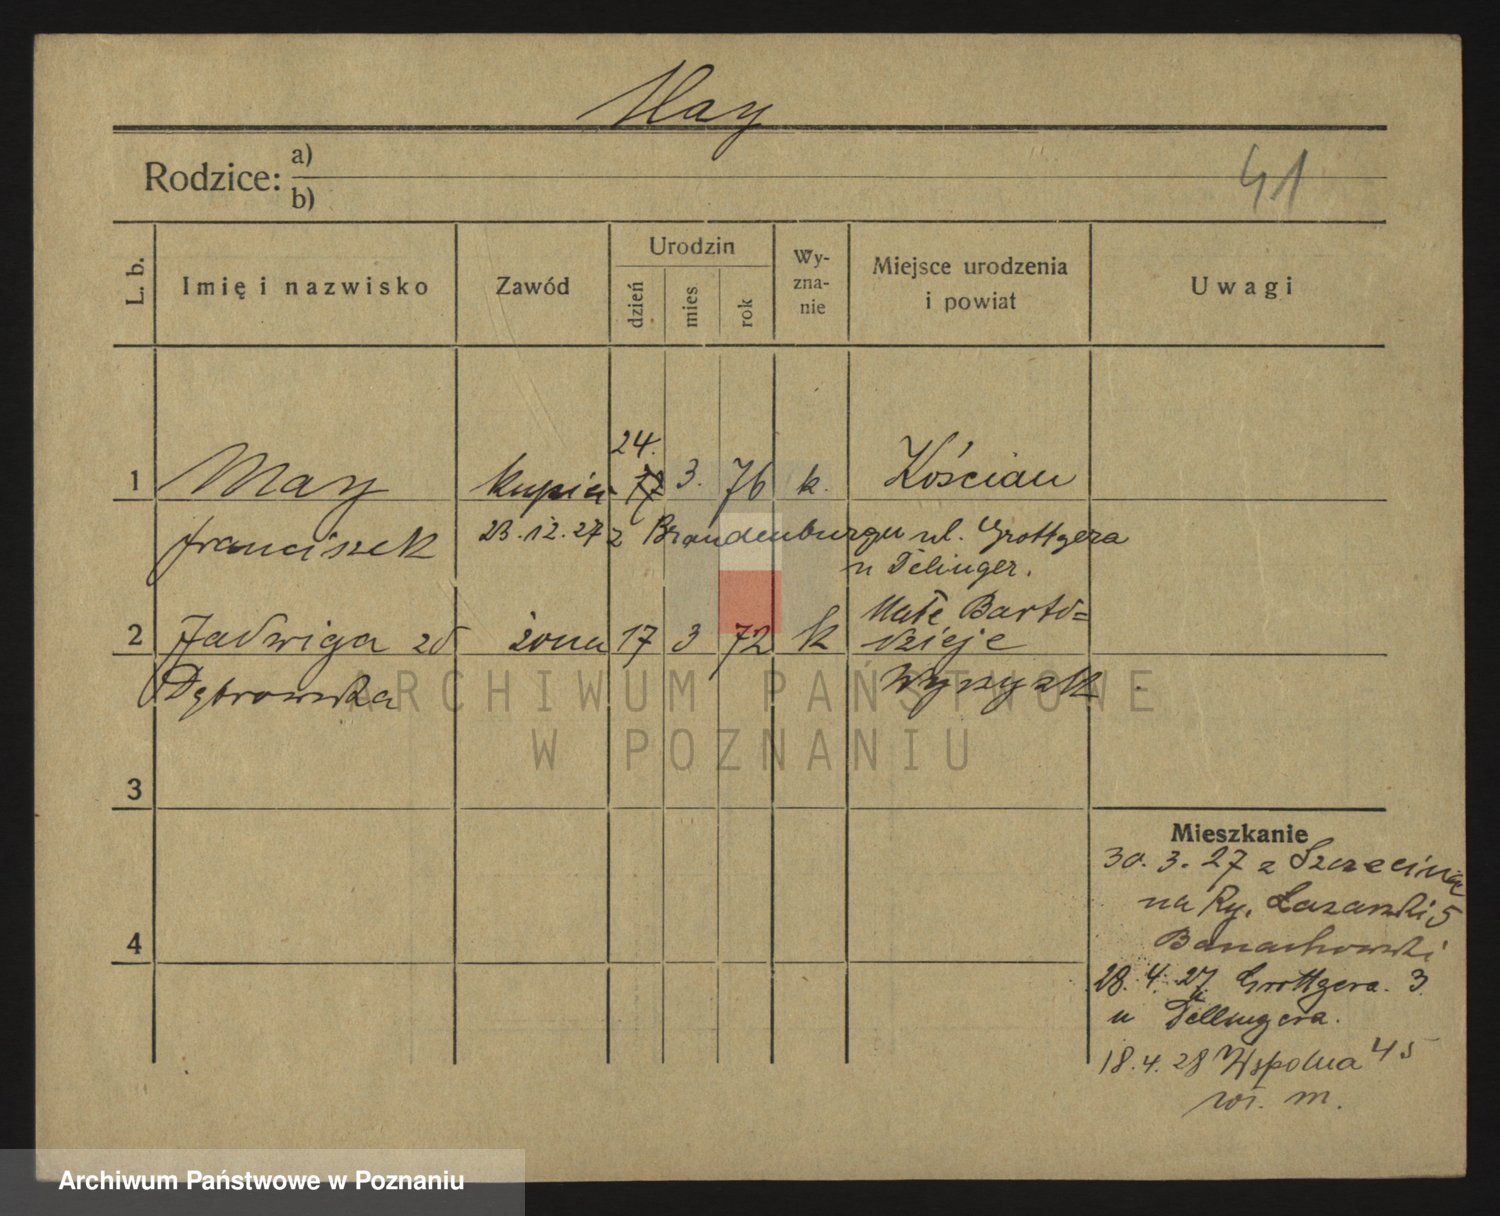 May
Rodzice: a)
b)
41
L. b.
Imię i nazwisko
Zawód
Urodzin
dzień
mies
rok
Wy-
zna-
nie
Miejsce urodzenia
i powiat
Uwagi
24.
1 May kupiec 17 3. 76 k. Kościan
Franciszek 23.12.27 z Brandenburgu ul. Grottgera
u Pelinger.
Małe Barto=
2 Jadwiga zd żona 17 3 72 k dzieje
Dąbrowska Wyrzysk
ARCHIWUM PAŃSTWOWE
W POZNANIU
3
Mieszkanie
30. 3. 27 z Szczecina
na Ry. Łazarski 5
Banachowski
4
28. 4. 27 Grottgera. 3
u Pellingera.
18. 4. 28 Wspolna 45
wł. m.
Archiwum Państwowe w Poznaniu